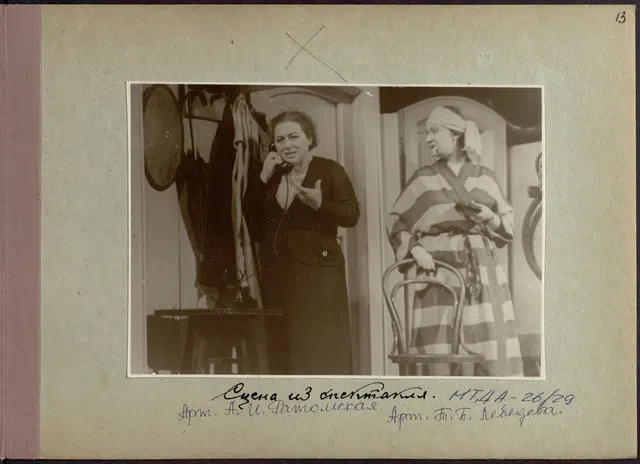 13
Сцена из спектакля. МТДА-26/29
Арт. А. И. Ратомская. Арт. Т. Б. Лебедева.